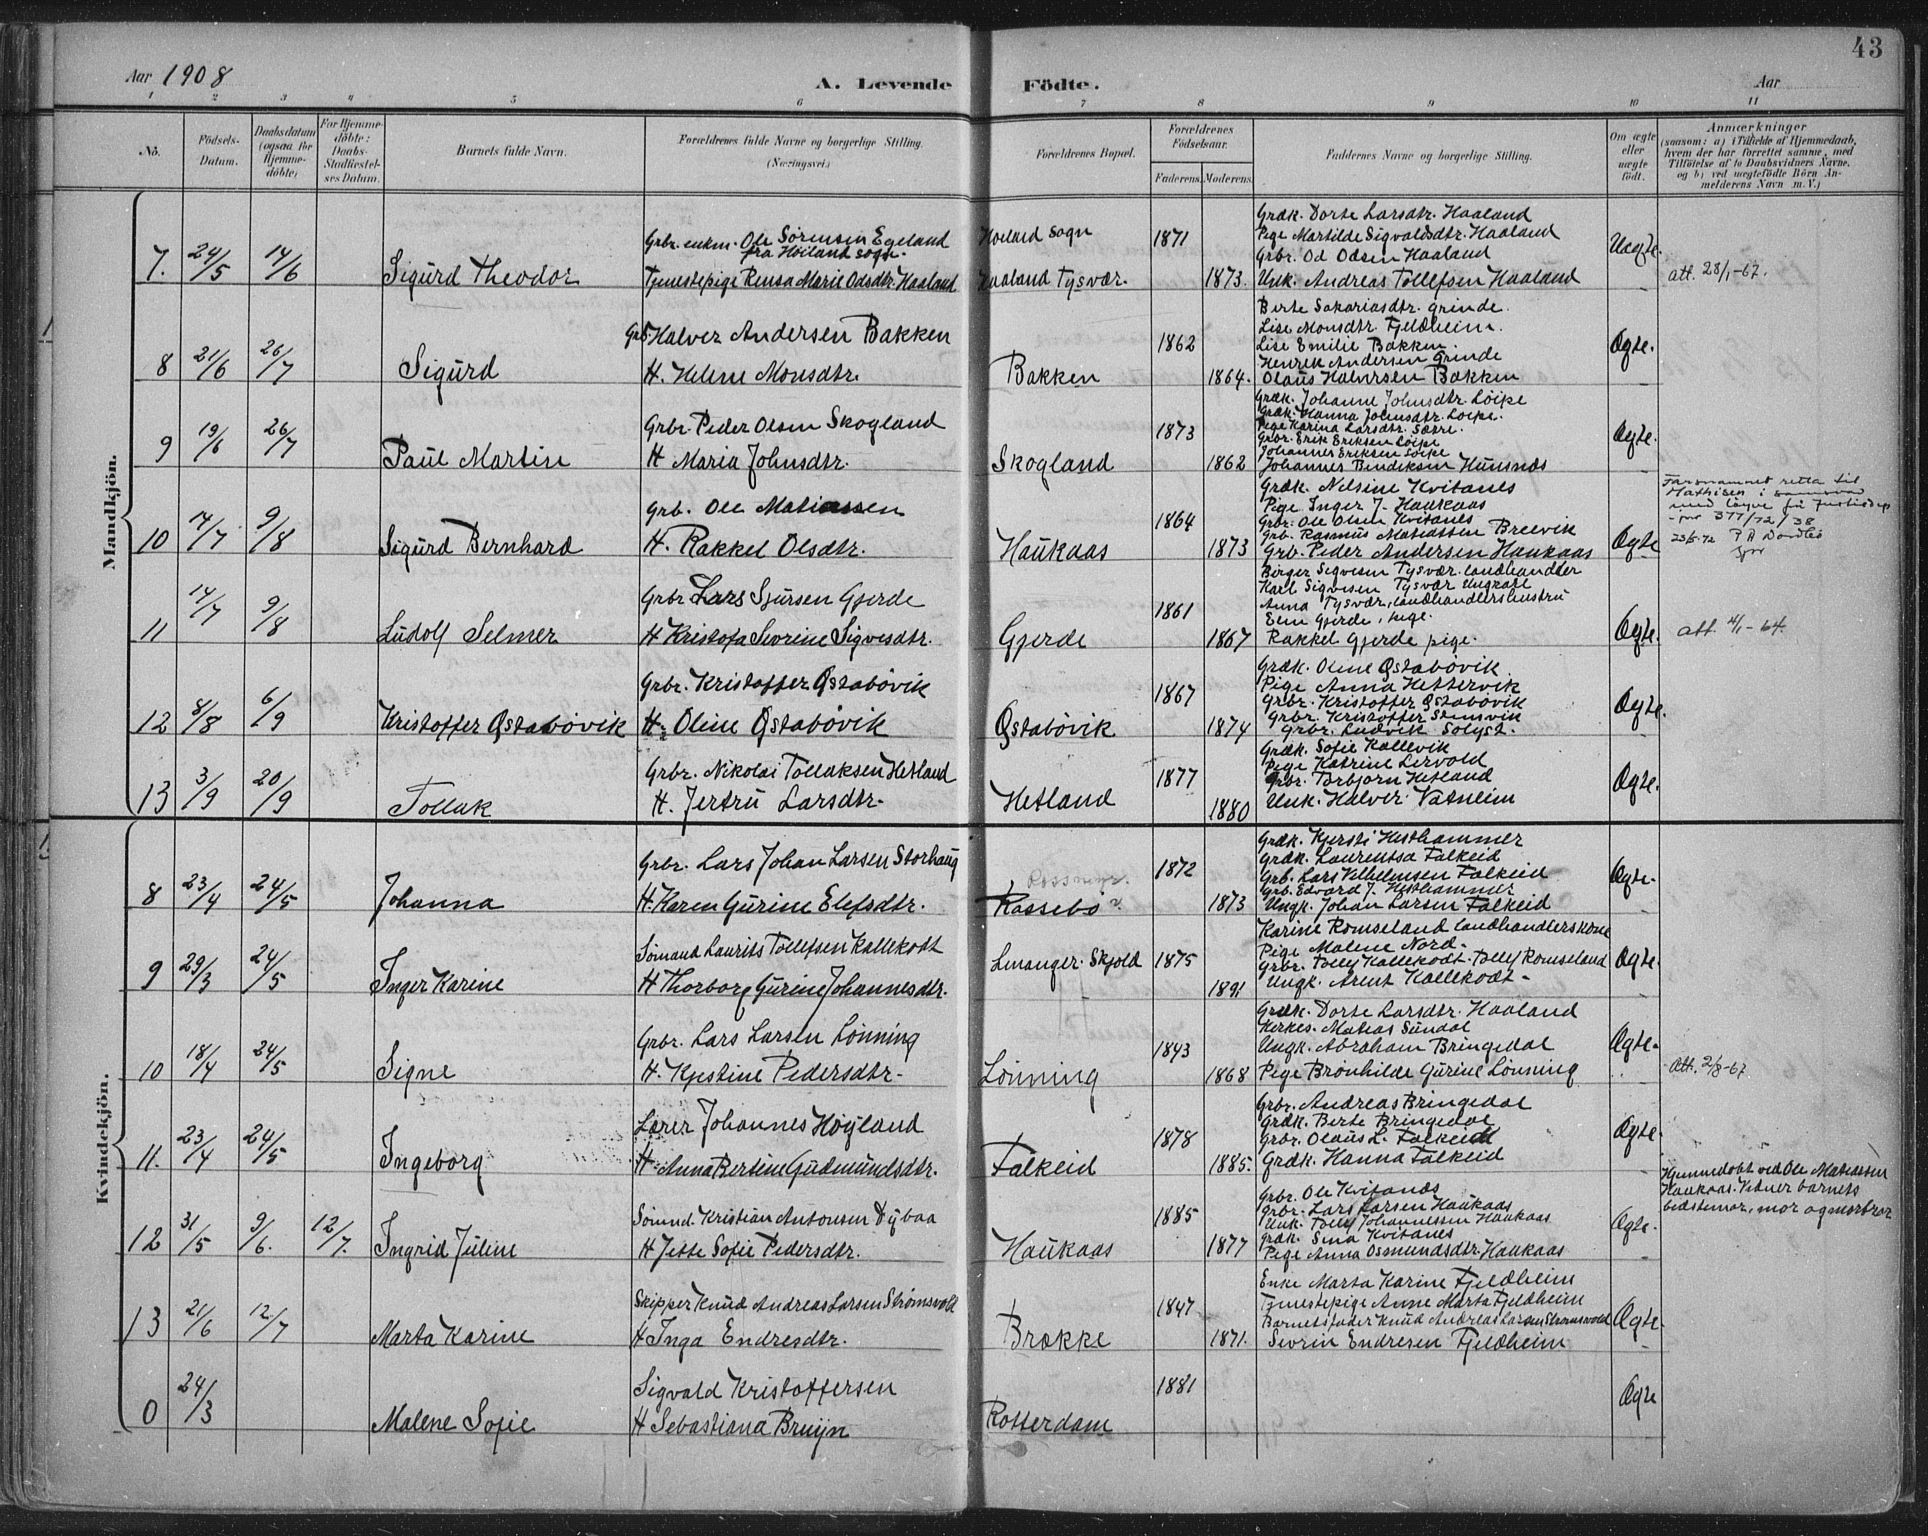 43
Aar 1908
A. Levende Födte.
Aar
1 2 3 4 5 6 7 8 9 10 11
No.
Födsels-Datum.
Daabsdatum (ogsaa for Hjemme-döbte)
For Hjemme-döbte: Daabs-Stadfæstel-ses Datum.
Barnets fulde Navn.
Forældrenes fulde Navne og borgerlige Stilling. (Næringsvei.)
Forældrenes Bopæl.
Forældrenes Födselsaar.
Faderens. Moderens.
Faddernes Navne og borgerlige Stilling.
Om ægte eller uægte födt.
Anmærkninger
(saasom: a) i Tilfælde af Hjemmedaab,
hvem der har forrettet samme, med
Tilföielse af to Daabsvidners Navne,
og b) ved uægtefödte Börn An-
melderens Navn m. V.)
Mandkjön.
7. 24/5 14/6 Sigurd Theodor
Grbr. enkm. Ole Sørensen Egeland
fra Høiland sogn.
Tjenestepige Rensa Marie Odsdtr. Haaland
Høiland sogn
Haaland Tysvær.
1871
1873.
Græk. Dorte Larsdtr. Haaland
Pige Martilde Sigvaldsdtr. Haaland
Grbr. Od Odsen Haaland
Unk. Andreas Tollefsen Haaland
Uægte.
att. 28/1-67.
8 21/6 26/7 Sigurd
Grb. Halver Andersen Bakken
H. Helene Monsdtr.
Bakken
1862
1864.
Berte Sakariasdtr. Grinde.
Lise Monsdtr. Fjeldheim.
Lise Emilie Bakken.
Henrik Andersen Grinde
Olaus Halversen Bakken
Ægte.
9 19/6 26/7 Paul Martin
Grbr. Peder Olsen Skogland
H Maria Johnsdtr.
Skogland
1873
1862
Græk. Johanne Johnsdtr. Loipe
Græk. Hanna Johnsdtr. Loipe.
Pige Karina Larsdtr. Sørre.
Grbr. Erik Eriksen Loipe
Johannes Eriksen Loipe
Johannes Bendiksen Hunsnæs
Ægte.
10 14/7 9/8 Sigurd Bernhard
Grb. Ole Matiassen
H. Rakkel Olsdtr.
Haukaas
1864
1873
Græk. Nelsine Kvitanes
Pige Inger J. Haukaas
Grbr. Ole Olsen Kvitanes
Grb. Rasmus Matiassen Breevik
Grb. Peder Andersen Haukaas
Ægte
Farsnamnet retta til
Mathisen i samsvar
med løyve frå
377/72/38
11 14/7 9/8 Ludolf Selmer
Grbr Lars Sjursen Gjerde
H Kristofa Sevrine Sigvesdtr.
Gjerde
1861
1867
Birger Sigvesen Tysvær. landhandler
Karl Sigvesen Tysvær Ungkarl
Anna Tysvær, landhandlershustru
Elen Gjerde, pige.
Rakkel Gjerde pige.
Ægte.
att. 4/1-64.
12 8/8 6/9 Kristoffer Østabøvik
Grbr. Kristoffer Østabøvik
H. Oline Østabøvik
Østabøvik
1867
1874
Græk. Oline Østabøvik
Pige Anna Hettervik
Grbr. Kristoffer Østabøvik
Grbr. Kristoffer Stemsvik
Grbr. Ludvik Solyst.
Ægte.
13 3/9 20/9 Tollak
Grbr. Nikolai Tollaksen Hetland
H. Jertru Larsdtr.
Hetland
1877
1880
Græk. Sofie Kallevik
Pige Katrine Lervold
Grbr. Torbjørn Hetland
Unk. Halver Vatneim
Ægte.
Kvindekjön.
8 23/4 24/5 Johanna
Grbr. Lars Johan Larsen Storhaug
H. Karen Gurine Elefsdtr.
Rossebø
1872
1873
Græk. Kjersti Hesthammer
Græk. Laurentsa Falkeid
Grb. Lars Velhelmsen Falkeid
Grb. Edvard J. Hesthammer
Ungk. Johan Larsen Falkeid
Ægte.
9 29/3 24/5 Inger Karine
Sømand Laurits Tollefsen Kallekodt
H Thorborg Gurine Johannesdtr.
Skjold
1875
1891
Karine Romseland landhandlerskone
Pige Malene Nord.
Grbr. Tolly Kallekodt. Tolly Romseland
Ungk. Arent Kallekodt
Ægte.
10 18/4 24/5 Signe
Grbr. Lars Larsen Lønning
H. Kjestine Pedersdtr.
Lønning
1843
1868
Græk. Dorte Larsdtr. Haaland
Kirkes. Matias Sundal
Ungk. Abraham Bringedal
Pige Brønhilde Gurine Lønning
Ægte.
Att. 2/8-67
11. 23/4 24/5 Ingeborg
Lærer Johannes Høyland
H Anna Bertine Gudmundsdtr.
Falkeid
1878
1885.
Grbr. Andreas Bringedal
Græk. Berte Bringedal
Grbr. Olaus L. Falkeid
Græk. Hanna Falkeid
Ægte.
12 31/5 9/6. 12/7. Ingrid Juline
Sømnd. Kristian Antonsen Dybaa
H Jette Sofie Pedersdtr.
Haukaas
1885
1877
Grbr. Ole Kvitanes
Grbr. Lars Larsen Haukaas
Unk. Tolly Johannessen Haukaas
Græk. Sina Kvitanes
Pige Anna Osmundsdtr. Haukaas
Ægte.
Hjemmedøbt ved Ole Matiassen
Haukaas. Vidner barnets
bedstemor, mor og morbror
13 21/6 12/7 Marta Karine
Skipper Knud Andreas Larsen Strømsvold
H Inga Endresdtr.
Brække
1847
1871.
Enke Marta Karine Fjeldheim
Tjenestepige Anne Marta Fjeldheim
Barnetsfader Knud Andreas Larsen Strømsvold
Sevrin Endresen Fjeldheim
Ægte.
0 24/3 Malene Sofie
Sigvald Kristoffersen
H Sebastiana Bruyn
Rotterdam
1881
Ægte